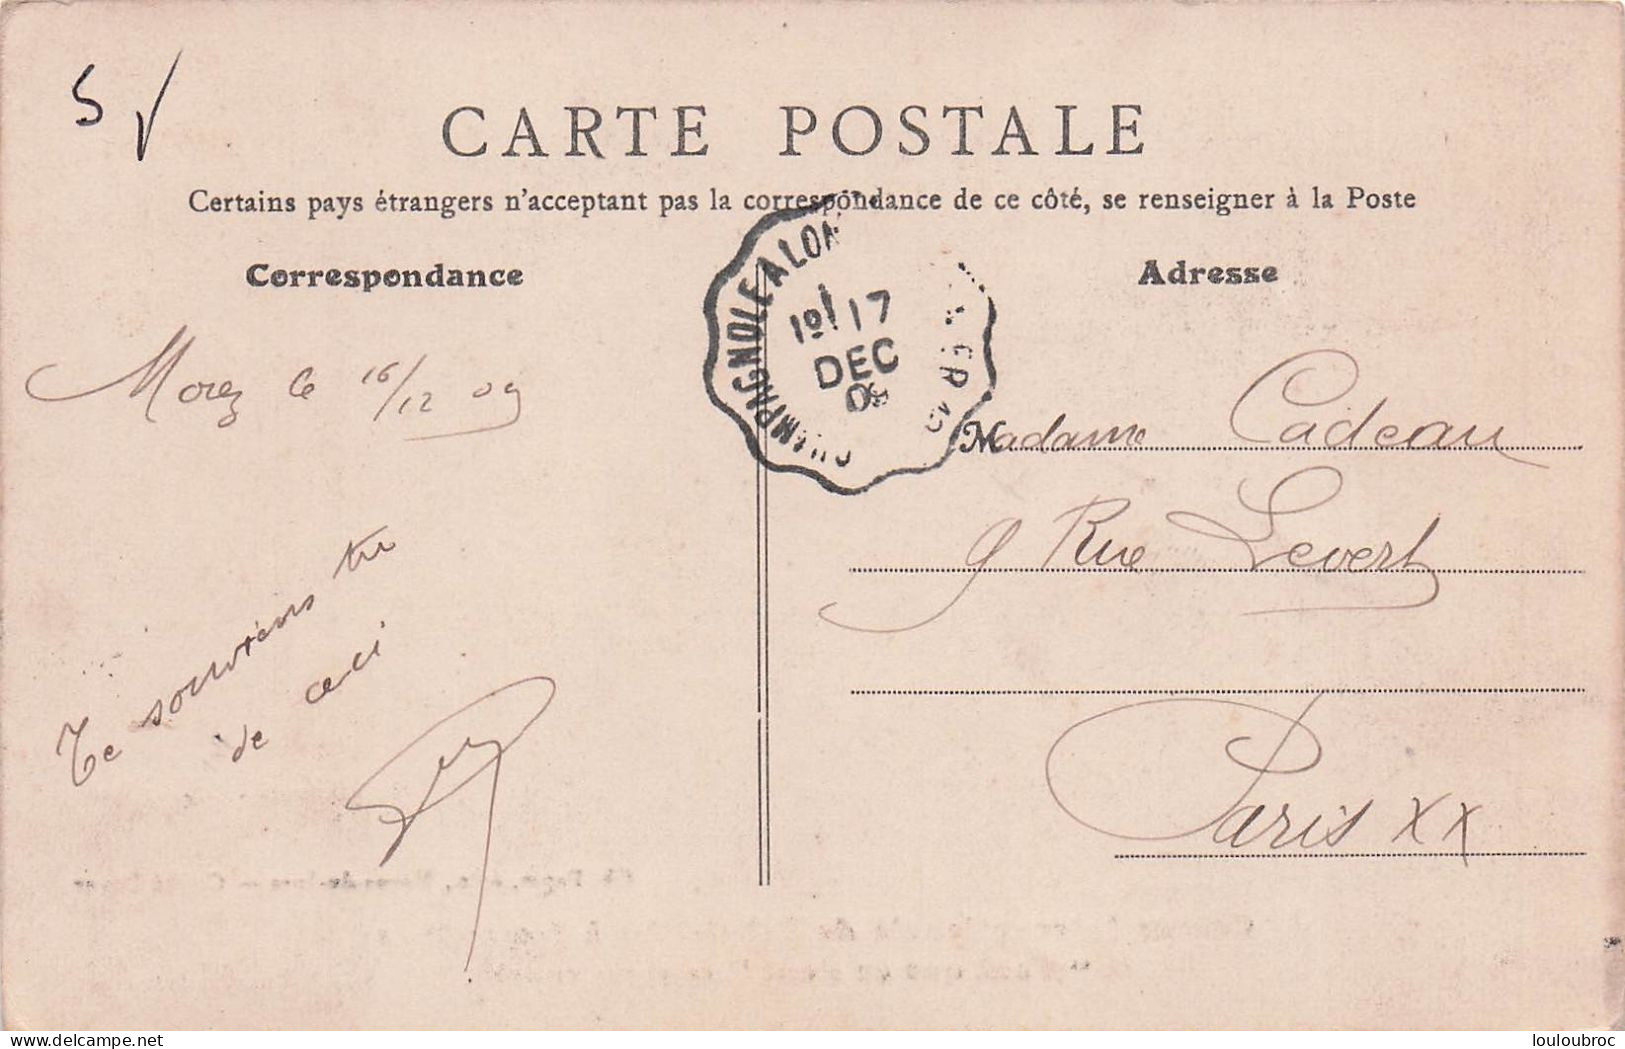 5
CARTE POSTALE
Certains pays étrangers n'acceptant pas la correspondance de ce côté, se renseigner à la Poste
Correspondance
Adresse
CHAMPAGNOLE A LON
1º/ 17
DEC
09
Morez le 16/12 09
Te souviens tu
de ceci
Madame Cadeau
9 Rue Levert
Paris XX
www.delcampe.net
louloubroc